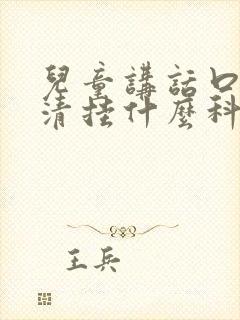 兒童講話口
清挂什麼科
王兵